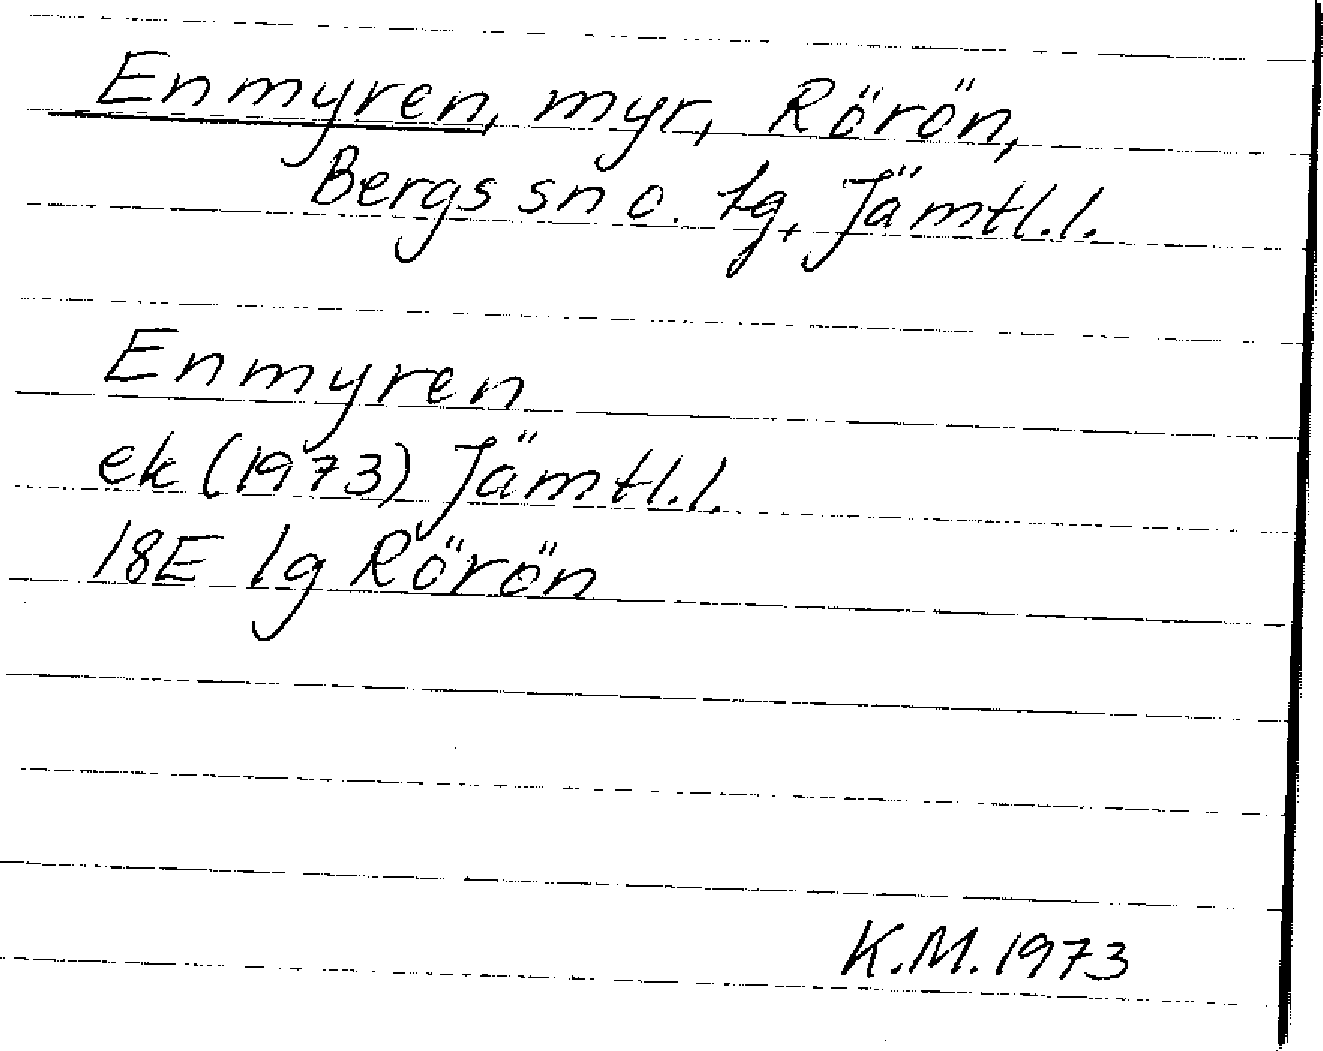 Enmyren, myr, Rörön,
Bergs sn o. tg, Jämtl. l.
Enmyren
ek (1973) Jämtl. l.
18E 1g Rörön
K.M. 1973